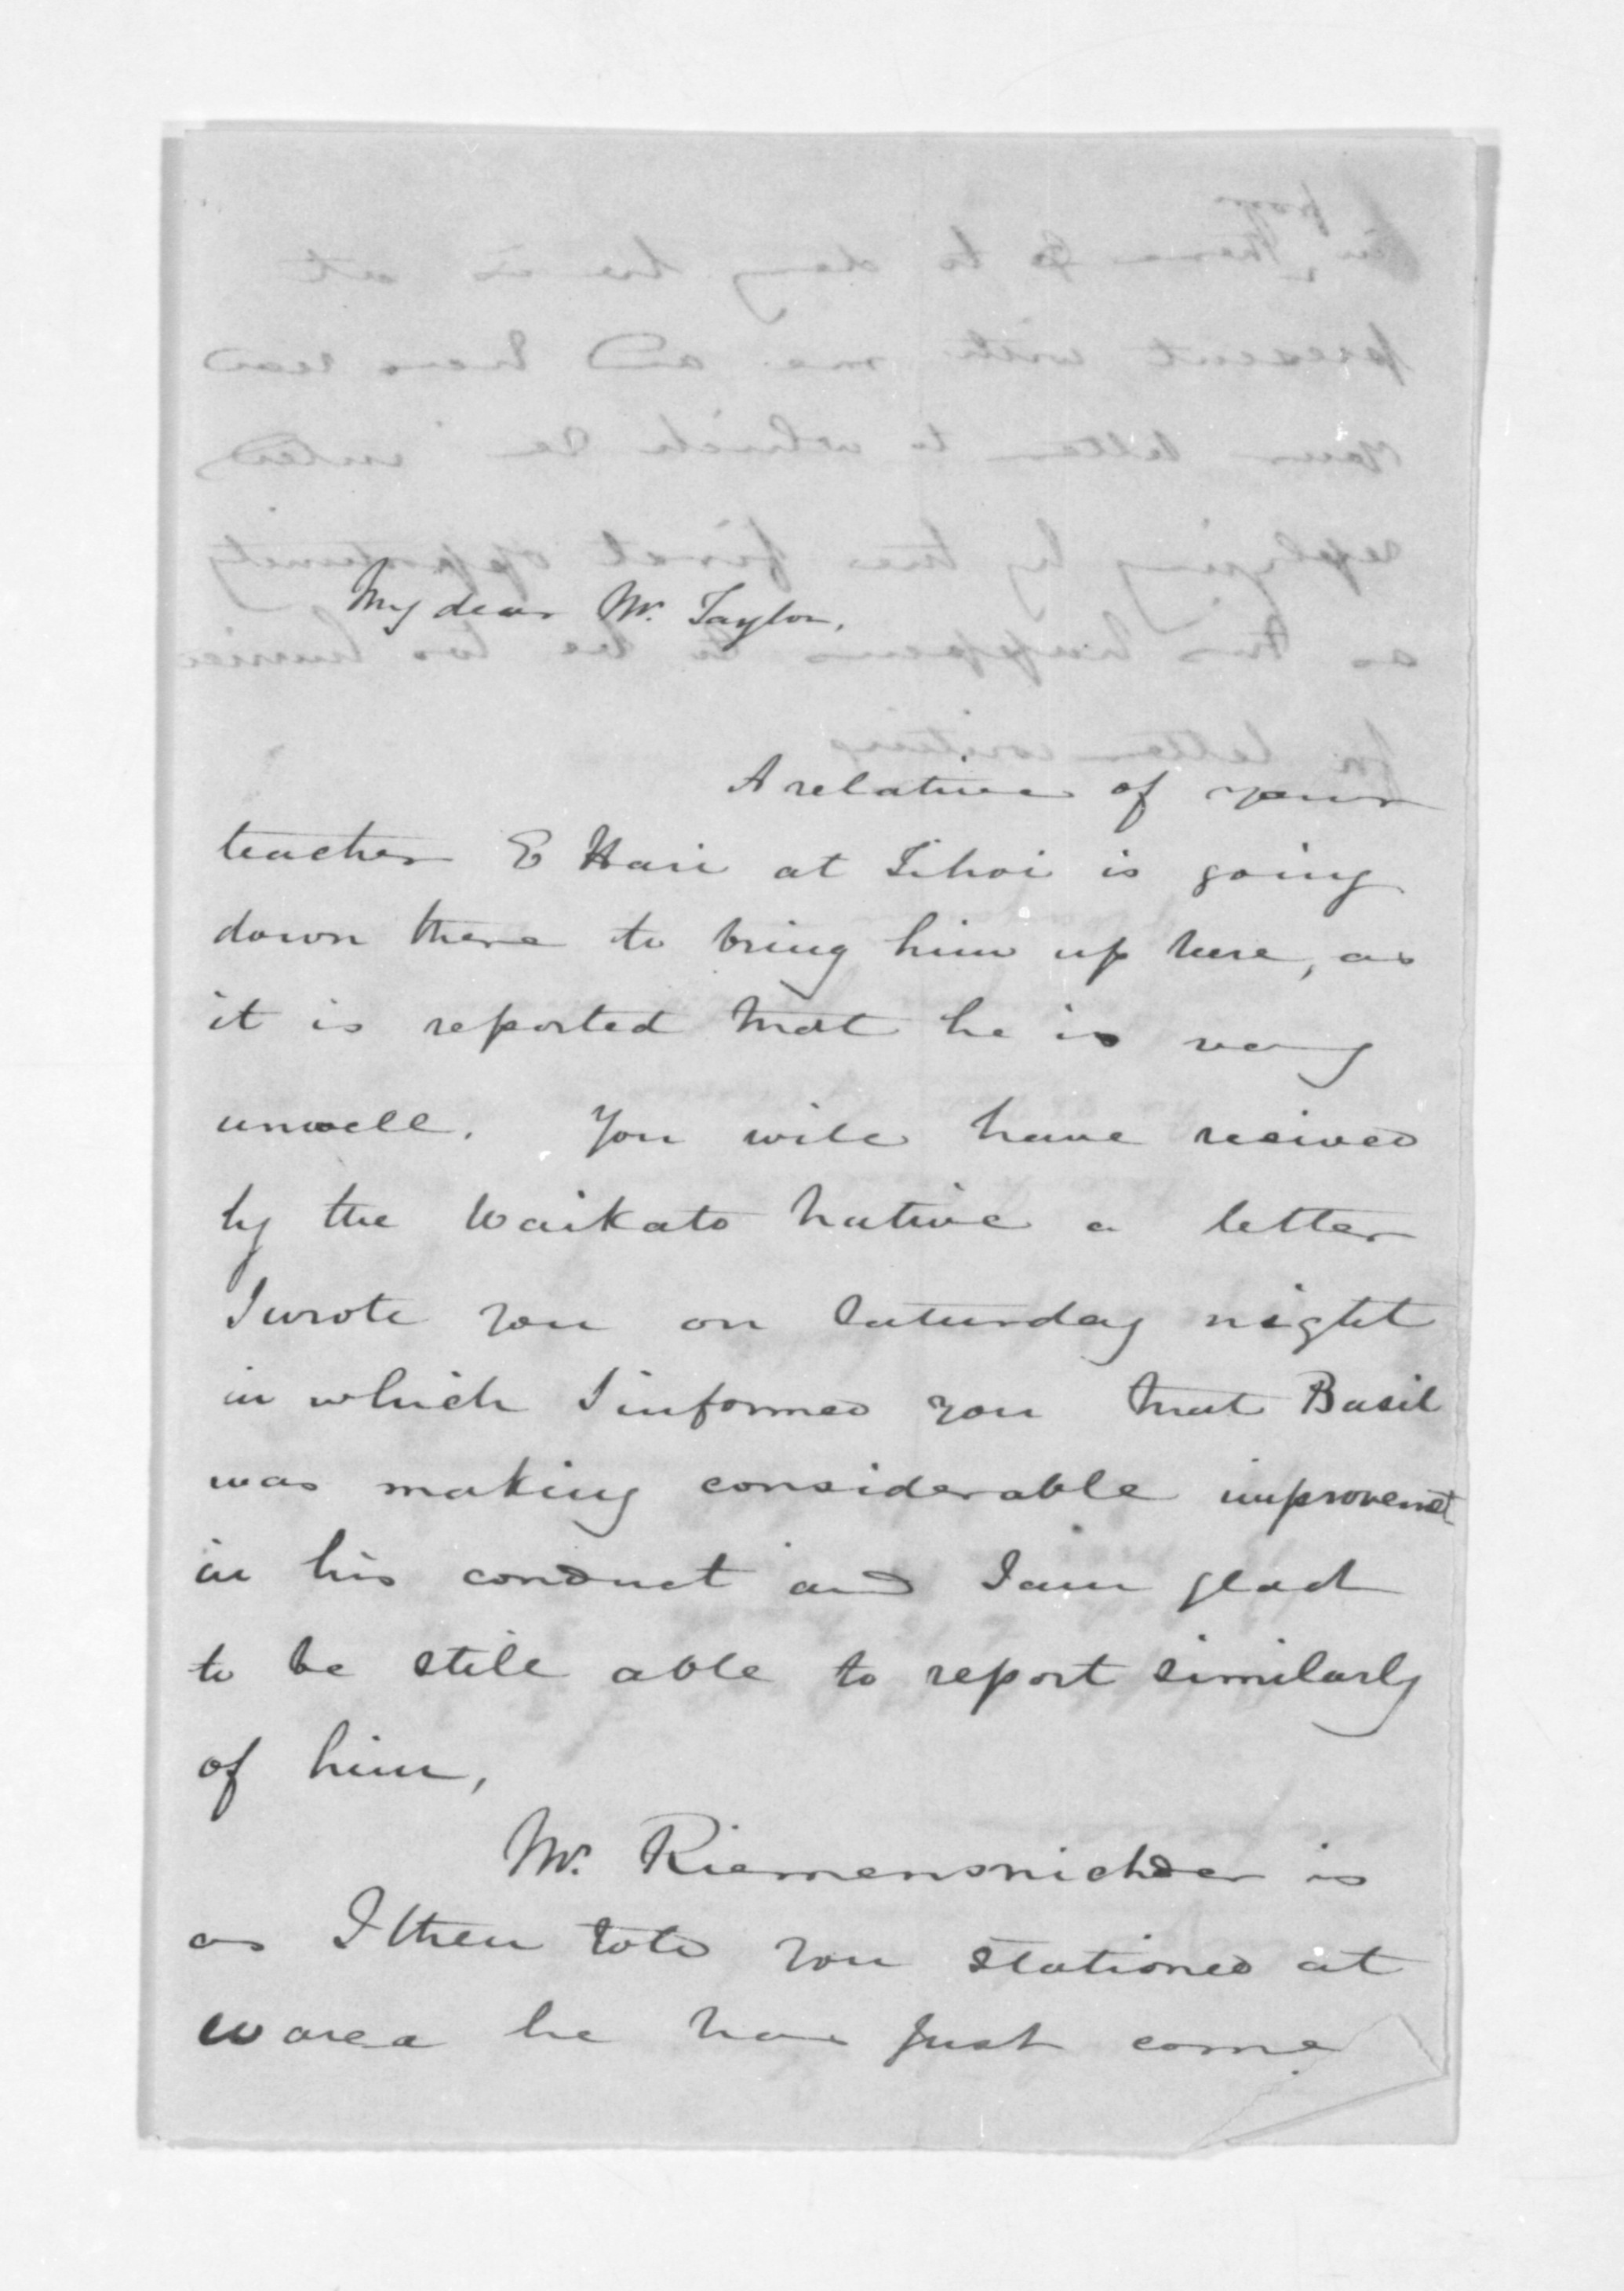 My dear Mr. Taylor,
A relative of your
teacher E Hari at Tihoi is going
down there to bring him up here, as
it is reported that he is very
unwell. You will have recived
by the Waikato native a letter
I wrote you on Saturday night
in which I informed you that Basil
was making considerable improvemet
in his conduct and I am glad
to be still able to report similarly
of him,
Mr. Riemensnichder is
as I then told you stationed at
Warea he has just come